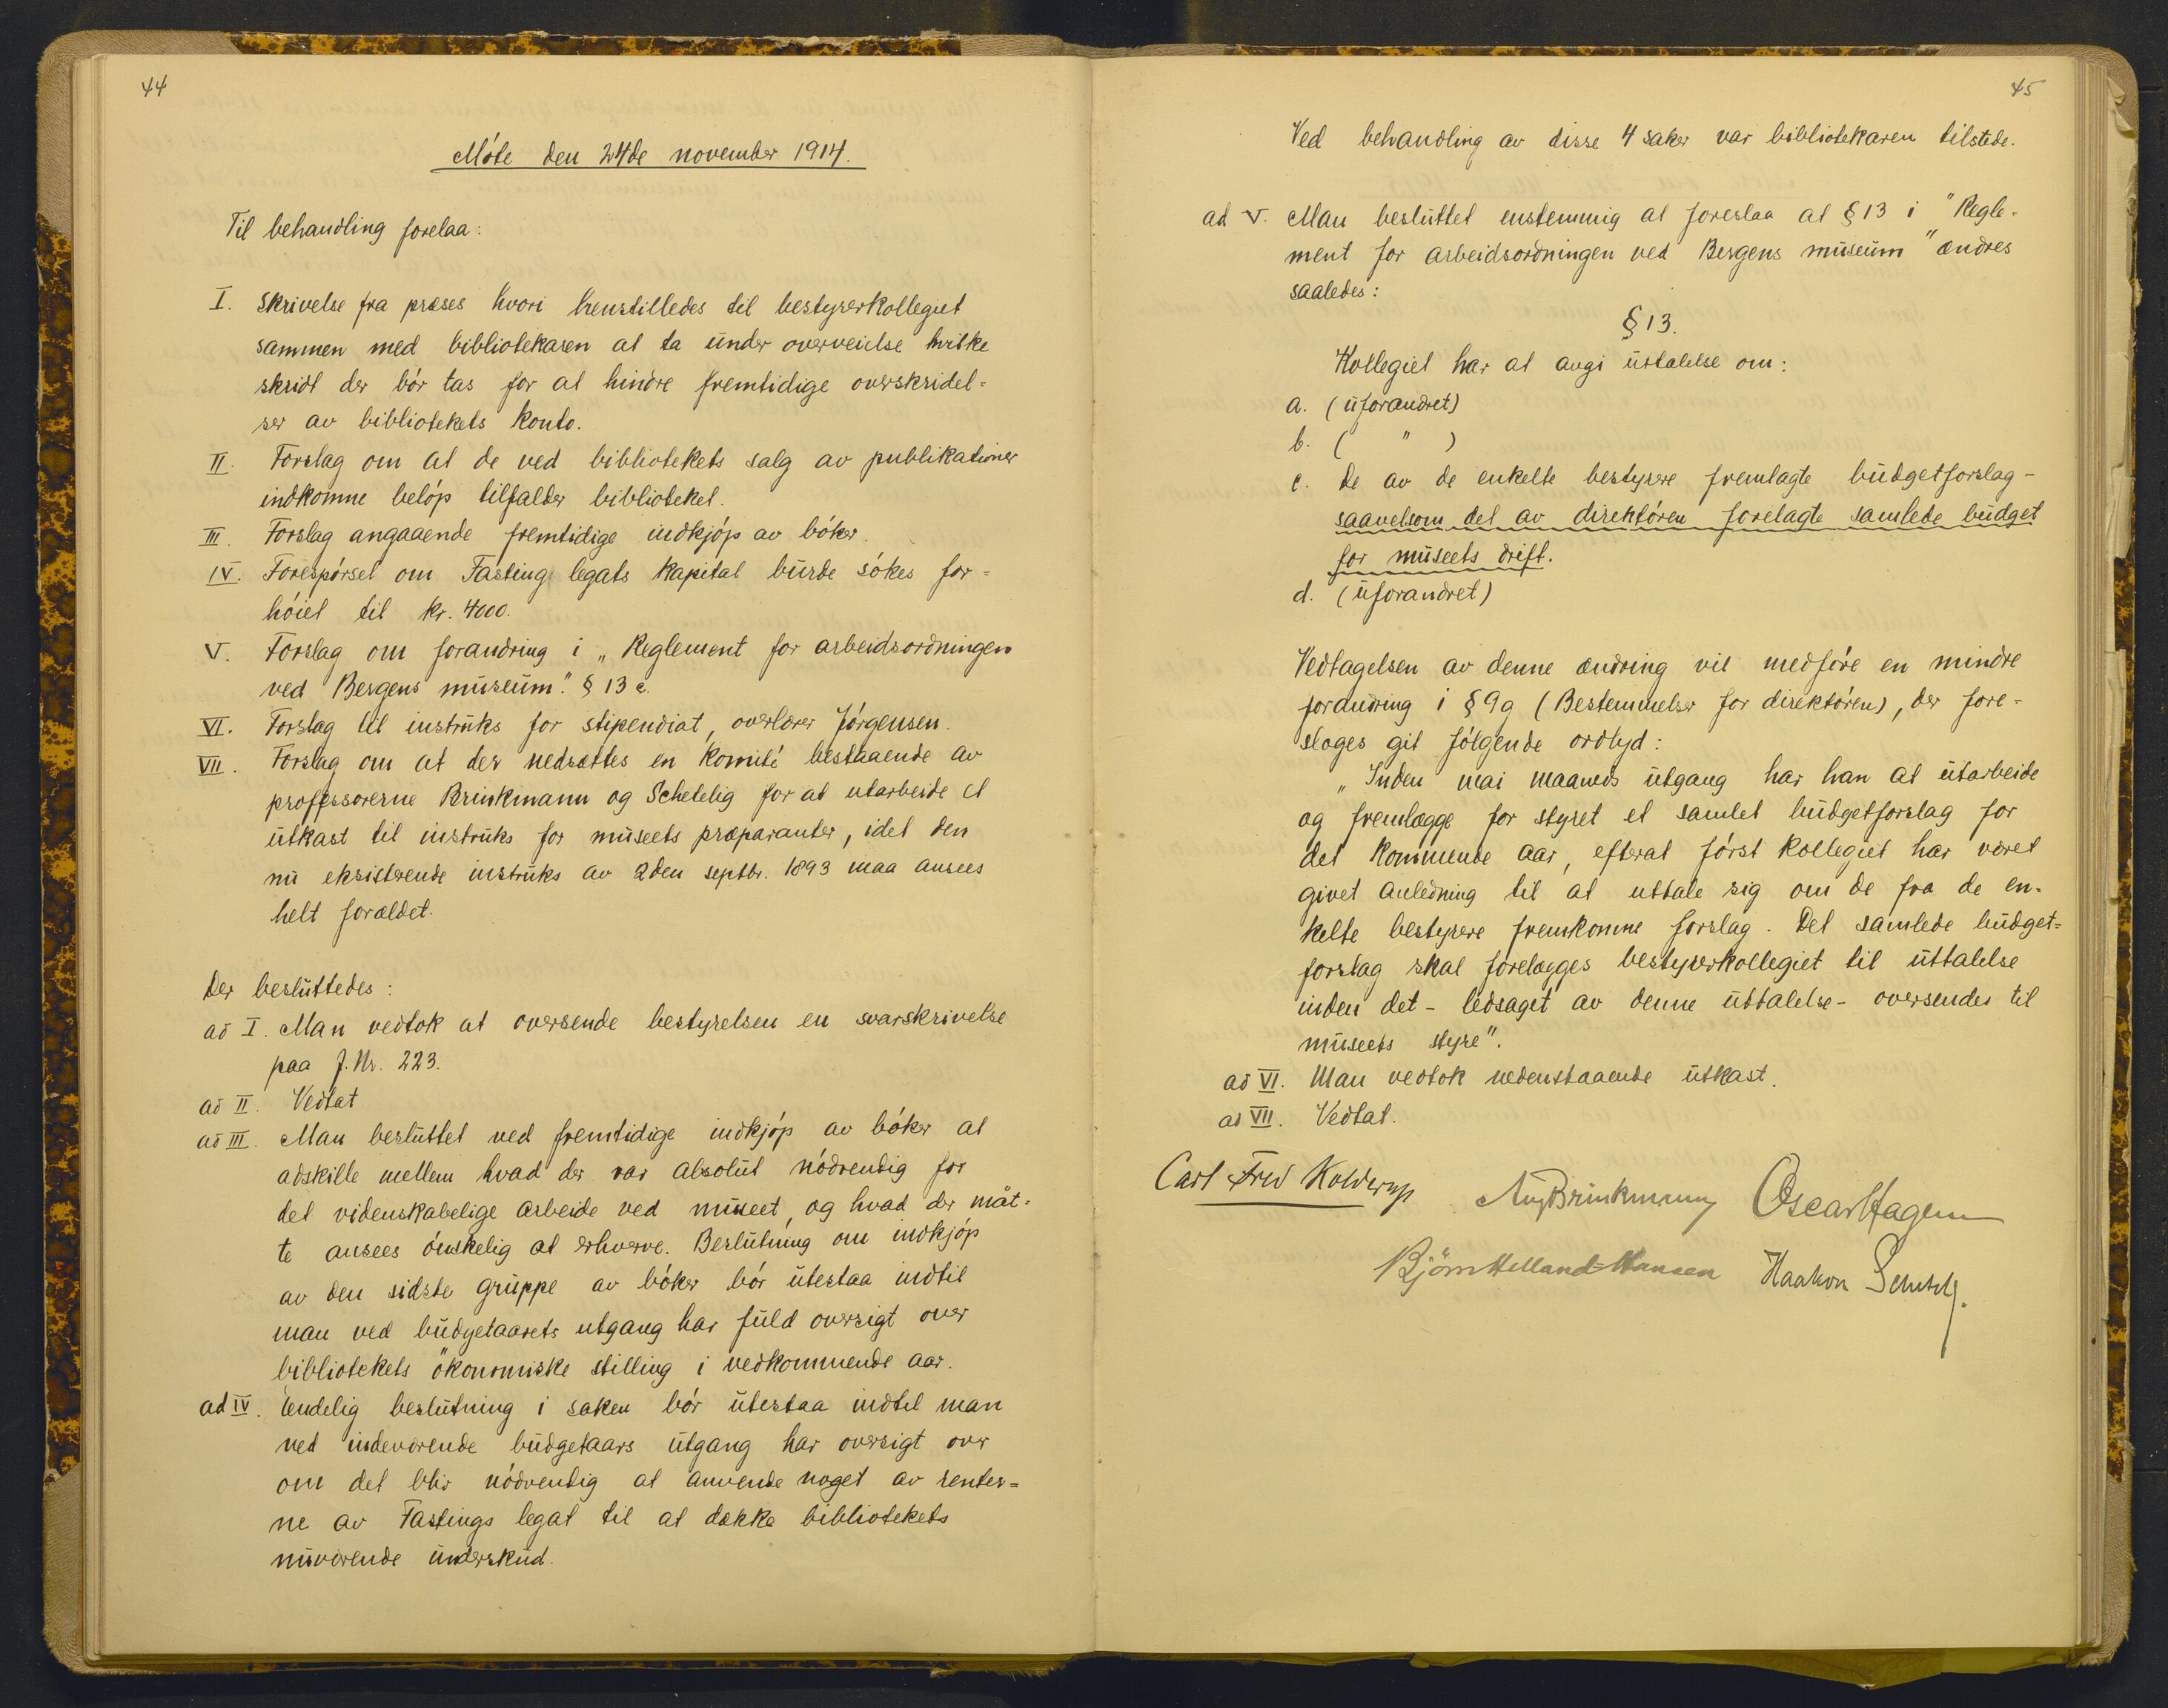 44
Møte den 24de november 1914.
Til behandling forelaa:
I. Skrivelse fra præses hvori henstilledes til bestyrerkollegiet
sammen med bibliotekaren at ta under overveielse hvilke
skridt der bør tas for at hindre fremtidige overskridel=
ser av bibliotekets konto.
II. Forslag om at de ved bibliotekets salg av publikationer
indkomne beløp tilfalder biblioteket.
III. Forslag angaaende fremtidige indkjøp av bøker.
IV. Forespørsel om Fasting legats kapital burde søkes for=
høiet til kr. 4000.
V. Forslag om forandring i „Reglement for arbeidsordningen
ved Bergens museum". § 13 c.
VI. Forslag til instruks for stipendiat, overlærer Jørgensen.
VII. Forslag om at der nedsættes en komité bestaaende av
professorerne Brinkmann og Schetelig for at utarbeide et
utkast til instruks for museets præparanter, idet den
nu eksisterende instruks av 2den septbr. 1893 maa ansees
helt forældet.
Der besluttedes:
ad I. Man vedtok at oversende bestyrelsen en svarskrivelse
paa J. Nr. 223.
ad II. Vedtat
ad III. Man besluttet ved fremtidige indkjøp av bøker at
adskille mellem hvad der var absolut nødvendig for
det videnskabelige arbeide ved museet, og hvad der måt=
te ansees ønskelig at erhverve. Beslutning om indkjøp
av den sidste gruppe av bøker bør utestaa indtil
man ved budgetaarets utgang har fuld oversigt over
bibliotekets økonomiske stilling i vedkommende aar.
ad IV. Endelig beslutning i saken bør utestaa indtil man
ved indeværende budgetaars utgang har oversigt over
om det blir nødvendig at anvende noget av renter=
ne av Fastings legat til at dække bibliotekets
nuværende underskud.
45
Ved behandling av disse 4 saker var bibliotekaren tilstede.
ad V. Man besluttet enstemmig at foreslaa at § 13 i "Regle-
ment for arbeidsordningen ved Bergens museum" ændres
saaledes:
§ 13.
Kollegiet har at avgi uttalelse om:
a. (uforandret)
b. ( " )
c. de av de enkelte bestyrere fremlagte budgetforslag -
saavelsom det av direktøren forelagte samlede budget
for museets drift.
d. (uforandret)
Vedtagelsen av denne ændring vil medføre en mindre
forandring i § 9g (Bestemmelser for direktøren), der fore-
slages git følgende ordlyd:
„Inden mai maaneds utgang har han at utarbeide
og fremlægge for styret et samlet budgetforslag for
det kommende aar, efterat først kollegiet har været
givet anledning til at uttale sig om de fra de en-
kelte bestyrere fremkomne forslag. Det samlede budget=
forslag skal forelægges bestyrerkollegiet til uttalelse
inden det - ledsaget av denne uttalelse - oversendes til
museets styre".
ad VI. Man vedtok nedenstaaende utkast.
ad VII. Vedtat.
Carl Fred Kolderup Aug Brinkmann Oscar Hagem
Bjørn Helland-Hansen Haakon Schetelig.